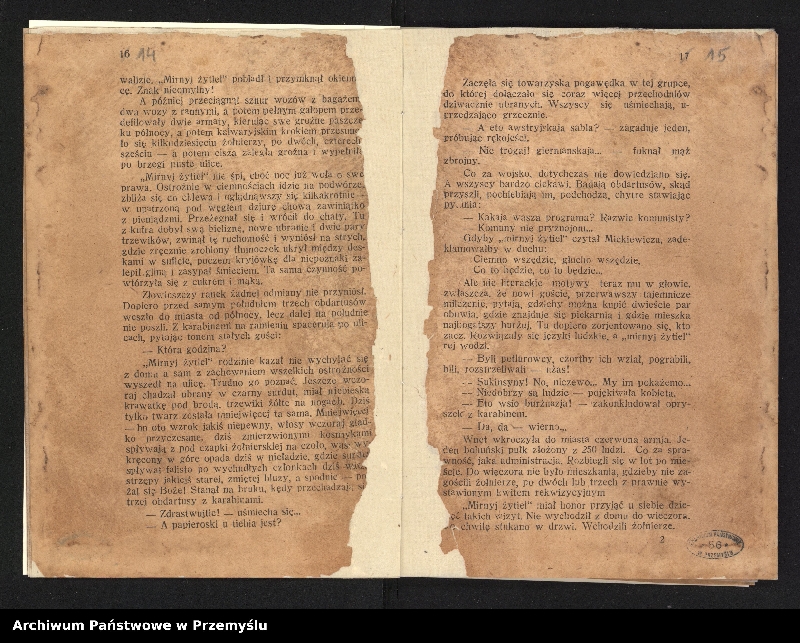 16 14
walizie. „Mirnyj żytiel" pobladł i przymknął okienn
cę. Znak nieomylny!
A później przeciągnął sznur wozów z bagażem
dwa wozy z rannymi, a potem pełnym galopem prze-
defilowały dwie armaty, kierując swe groźne paszcze
ku północy, a potem kalwaryjskim krokiem przesunę-
ło się kilkodziesięciu żołnierzy, po dwóch, czterech
sześciu — a potem cisza zaległa groźna i wypełniła
po brzegi puste ulice.
„Mirnyj żytiel" nie śpi, choć noc już woła o swe
prawa. Ostrożnie w ciemnościach idzie na podwórze,
zbliża się do chlewa i oglądnąwszy się kilkakrotnie —
w upatrzoną pod węgłem dziurę chowa zawiniątko
z pieniądzmi. Przeżegnał się i wrócił do chaty. Tu
z kufra dobył swą bieliznę, nowe ubranie i dwie pary
trzewików, zwinął tę ruchomość i wyniósł na strych,
gdzie zręcznie zrobiony tłumoczek ukrył między des-
kami w suficie, poczem kryjówkę dla niepoznaki za-
lepił gliną i zasypał śmieciem. Ta sama czynność po-
wtórzyła się z cukrem i mąką.
Złowieszczy ranek żadnej odmiany nie przyniósł.
Dopiero przed samym południem trzech obdartusów
weszło do miasta od północy, lecz dalej na południe
nie poszli. Z karabinami na ramieniu spacerują po uli-
cach, pytając tonem stałych gości:
— Która godzina?
„Mirnyj żytiel" rodzinie kazał nie wychylać się
z domu a sam z zachowaniem wszelkich ostrożności
wyszedł na ulicę. Trudno go poznać. Jeszcze wczo-
raj chadzał ubrany w czarny surdut, miał niebieską
krawatkę pod brodą, trzewiki żółte na nogach. Dziś
tylko twarz została mniejwięcej ta sama. Mniejwięcej
— bo oto wzrok jakiś niepewny, włosy wczoraj gład-
ko przyczesane, dziś zmierzwionymi kosmykami
spływają z pod czapki żołnierskiej na czoło, wąs wy
kręcony w górę opada dziś w nieładzie, gdzie surdut
spływał falisto po wychudłych członkach dziś wiszą
strzępy jakiejś starej, zmiętej bluzy, a spodnie — po
żal się Boże! Stanął na bruku, kędy przechadzają się
trzej obdartusy z karabinami.
— Zdrastwujtie! — uśmiecha się...
— A papieroski u tiebia jest?
17 15
Zaczęła się towarzyska pogawędka w tej grupce,
do której dołączało się coraz więcej przechodniów
dziwacznie ubranych. Wszyscy się uśmiechają, u-
przedzająco grzecznie.
— A eto awstryjskaja sabla? — zagaduje jeden,
próbując rękojeści.
Nie trogaj! giermanskaja... — fuknął mąż
zbrojny.
Co za wojsko, dotychczas nie dowiedziano się.
A wszyscy bardzo ciekawi. Badają obdartusów, skąd
przyszli, pochlebiają im, podchodzą, chytre stawiając
pytania:
— Kakaja wasza programa? Razwie komunisty?
Komuny nie pryznajom...
Gdyby „mirnyj żytiel" czytał Mickiewicza, zade-
klamowałby w duchu:
Ciemno wszędzie, głucho wszędzie,
Co to będzie, co to będzie...
Ale nie literackie motywy teraz mu w głowie,
zwłaszcza, że nowi goście, przerwawszy tajemnicze
milczenie, pytają, gdzieby można kupić dwieście par
obuwia, gdzie znajduje się piekarnia i gdzie mieszka
najbogatszy burżuj. Tu dopiero zorjentowano się, kto
zacz. Rozwiązały się języki ludzkie, a „mirnyj żytiel"
rej wodzi.
— Byli petlurowcy, czorthy ich wział, pograbili,
bili, rozstrzeliwali — użas!
— Sukinsyny! No, niczewo... My im pokażemo...
— Niedobrzy są ludzie — pojękiwała kobieta.
— Eto wsio burżuazja! — zakonkludował opry-
szek z karabinem.
— Da, da — wierno...
Wnet wkroczyła do miasta czerwona armja. Je-
den bohuński pułk złożony z 250 ludzi. Co za spra-
wność, jaka administracja. Rozbiegli się w lot po mie-
ście. Do wieczora nie było mieszkania, gdzieby nie za-
gościli żołnierze, po dwóch lub trzech z prawnie wy-
stawionym kwitem rekwizycyjnym
„Mirnyj żytiel" miał honor przyjąć u siebie dzie-
ięć takich wizyt. Nie wychodził z domu do wieczora.
chwilę stukano w drzwi. Wchodzili żołnierze.
2
56
Archiwum Państwowe w Przemyślu